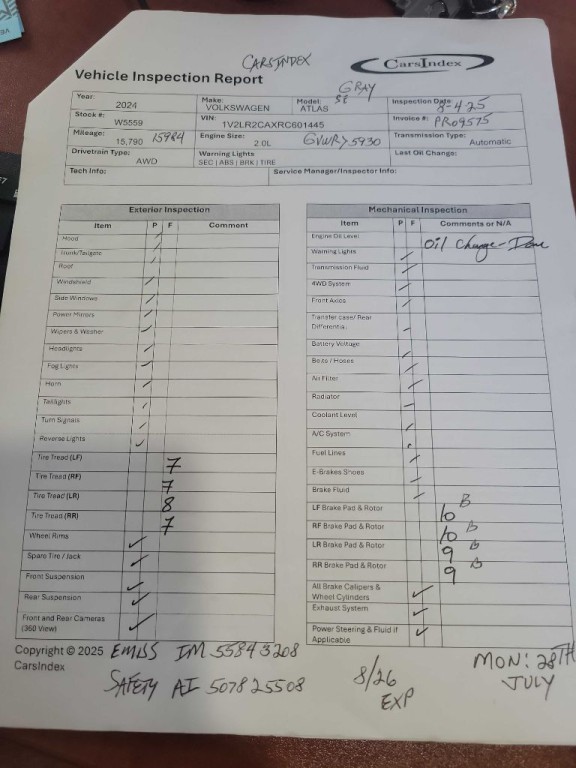 CARSINDEX
CarsIndex
Vehicle Inspection Report
GRAY
Year: 2024 Make: VOLKSWAGEN Model: ATLAS SE Inspection Date: 8-4-25
Stock #: W5559 VIN: 1V2LR2CAXRC601445 Invoice #: PRO9575
Mileage: 15,790 15984 Engine Size: 2.0L GVWR> 5930 Transmission Type: Automatic
Drivetrain Type: AWD Warning Lights SEC | ABS | BRK | TIRE Last Oil Change:
Tech Info: Service Manager/Inspector Info:
Exterior Inspection
Item P F Comment
Hood
Trunk/Tailgate
Roof
Windshield
Side Windows
Power Mirrors
Wipers & Washer
Headlights
Fog Lights
Horn
Taillights
Turn Signals
Reverse Lights
Tire Tread (LF) 7
Tire Tread (RF) 7
Tire Tread (LR) 8
Tire Tread (RR) 7
Wheel Rims
Spare Tire / Jack
Front Suspension
Rear Suspension
Front and Rear Cameras
(360 View)
Mechanical Inspection
Item P F Comments or N/A
Engine Oil Level Oil Change - Done
Warning Lights
Transmission Fluid
4WD System
Front Axles
Transfer case/ Rear
Differential
Battery Voltage
Belts / Hoses
Air Filter
Radiator
Coolant Level
A/C System
Fuel Lines
E-Brakes Shoes
Brake Fluid
LF Brake Pad & Rotor 10 B
RF Brake Pad & Rotor 10 B
LR Brake Pad & Rotor 9 B
RR Brake Pad & Rotor 9 B
All Brake Calipers &
Wheel Cylinders
Exhaust System
Power Steering & Fluid if
Applicable
Copyright © 2025
CarsIndex
EMISS IM 55843208
SAFETY AI 507825508
8/26
EXP
MON: 28TH
JULY